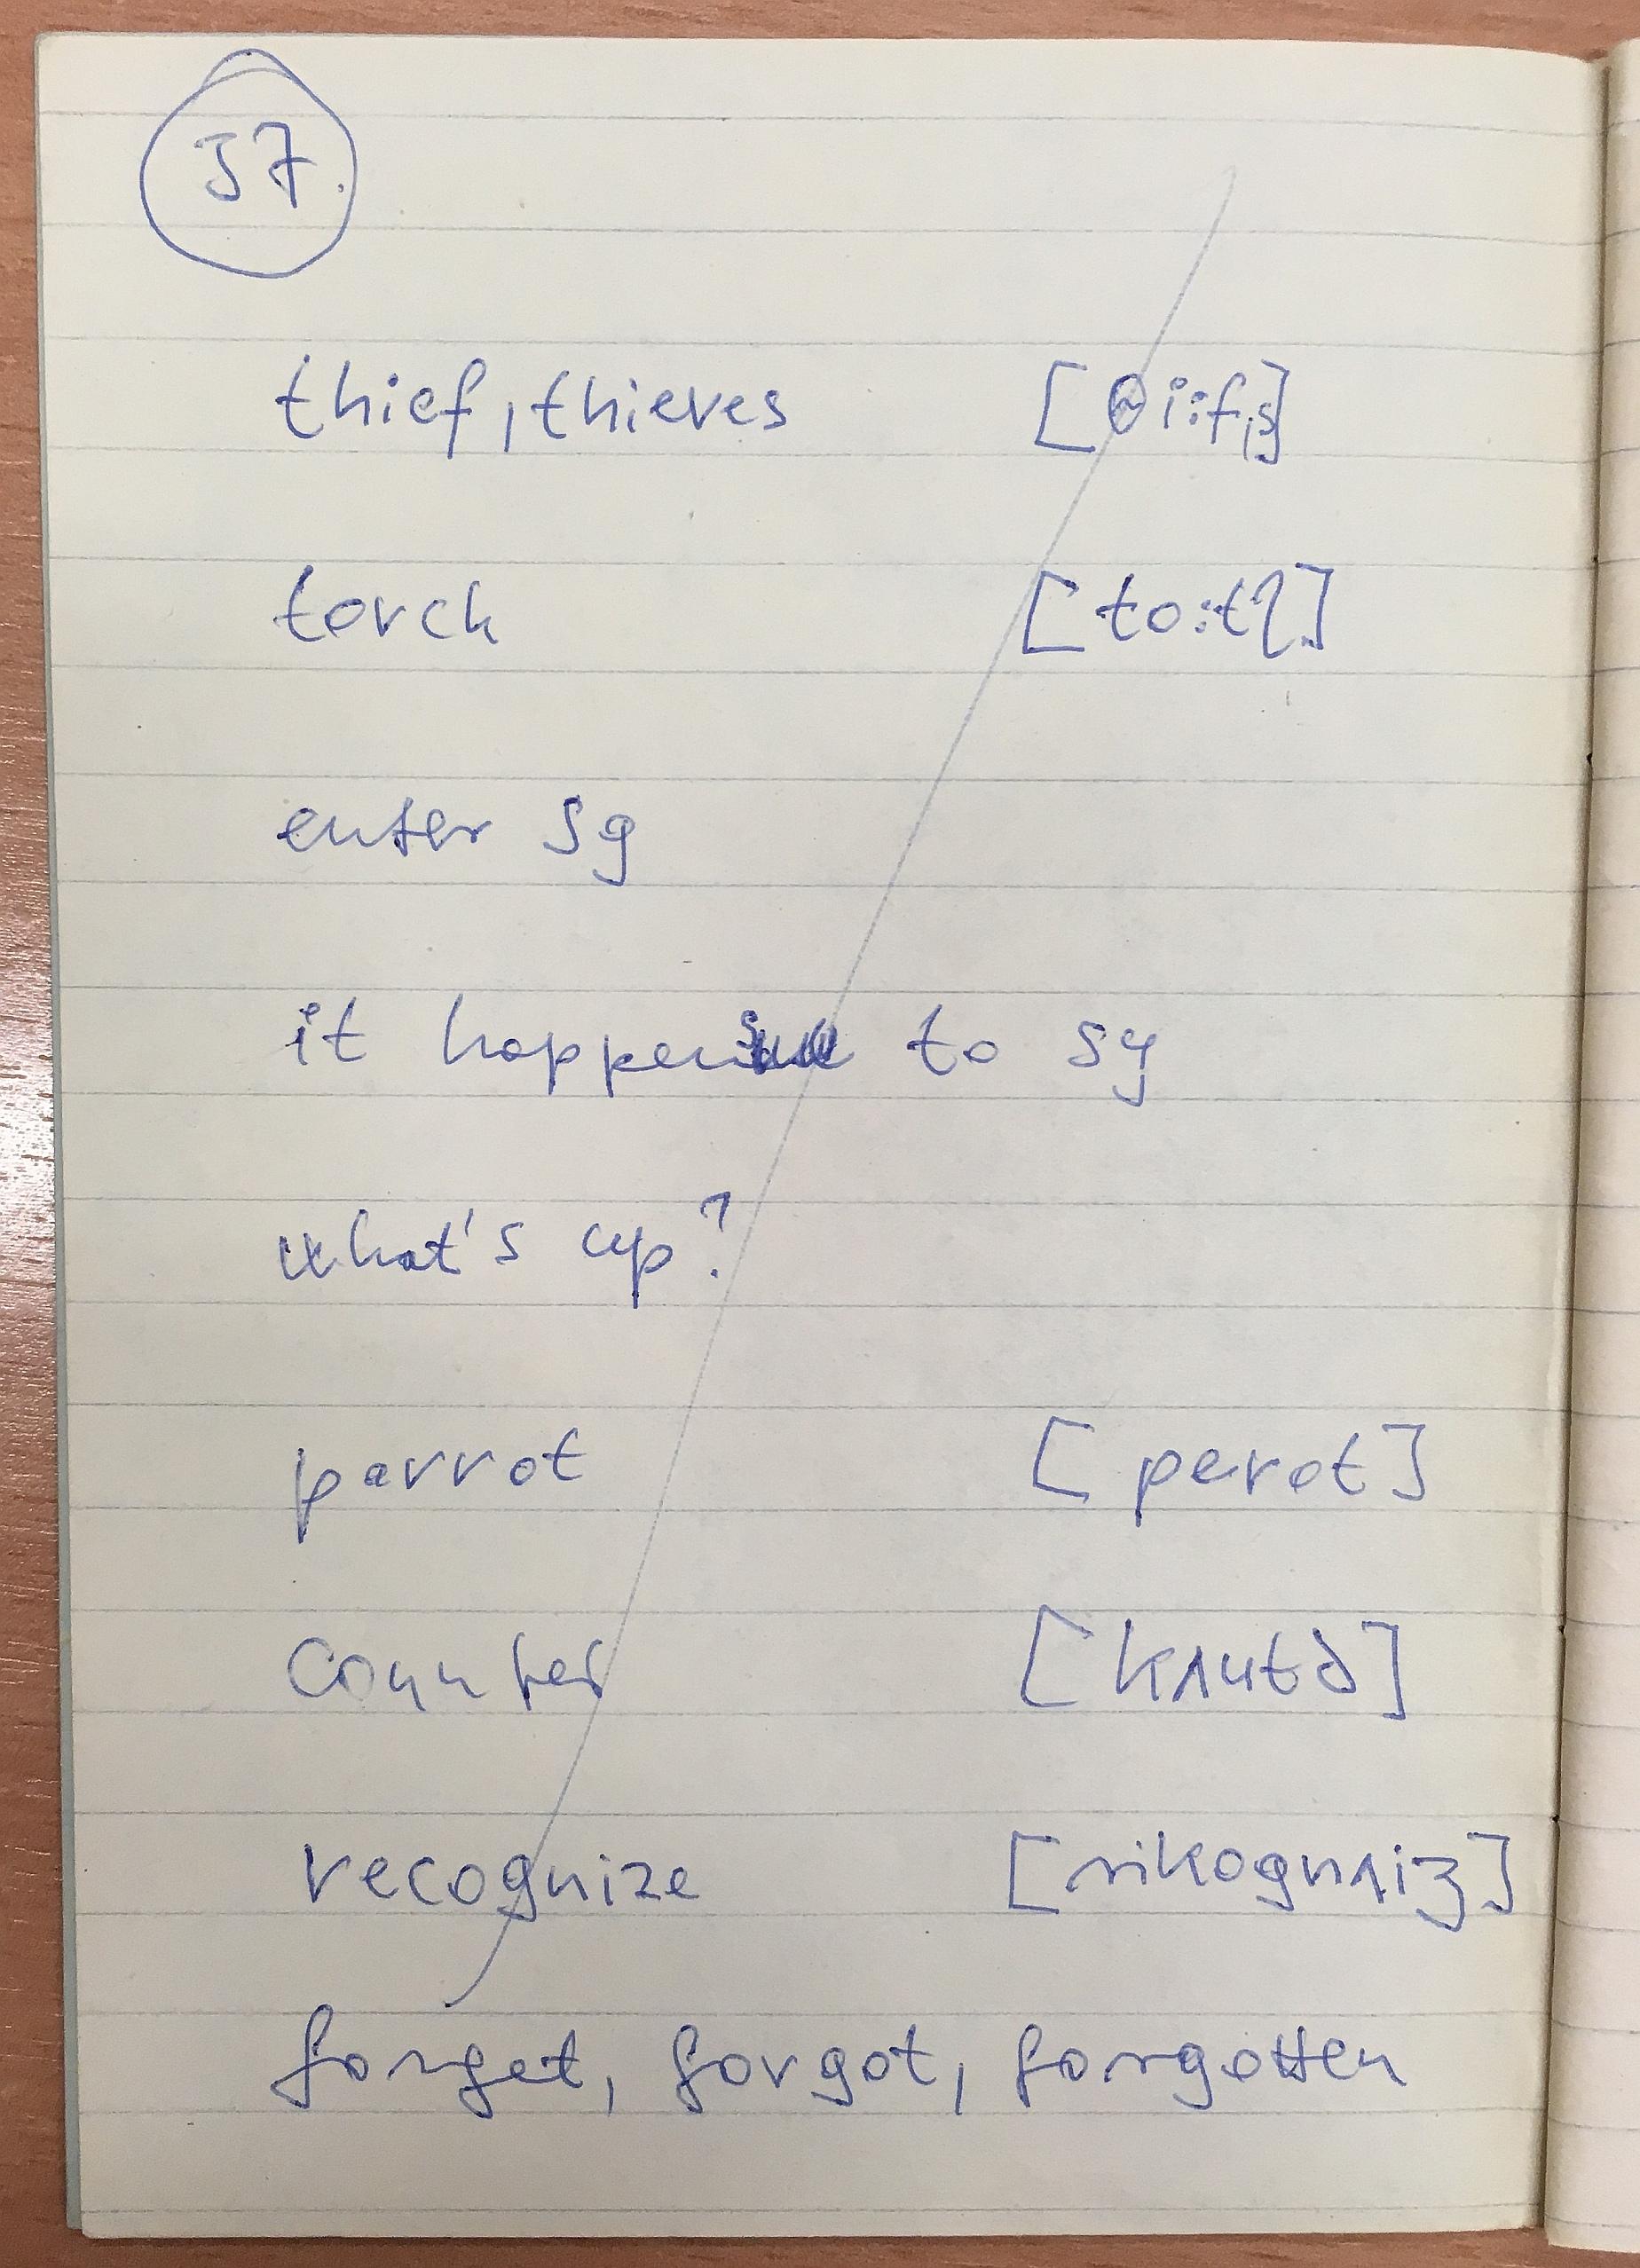 37.
thief, thieves [θi:f,s]
torch [to:tʃ]
enter sg
it happens to sy
what's up?
parrot [perot]
counter [kʌutə]
recognize [rikognʌiʒ]
forget, forgot, forgotten